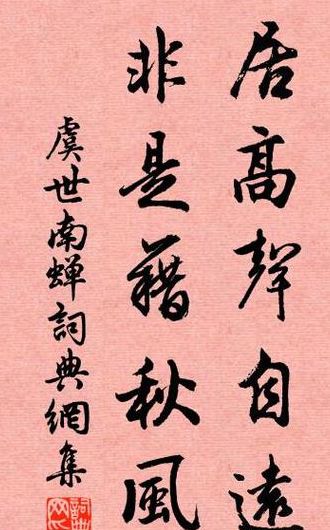 居高聲自遠
非是藉秋風
虞世南蝉詞典網集